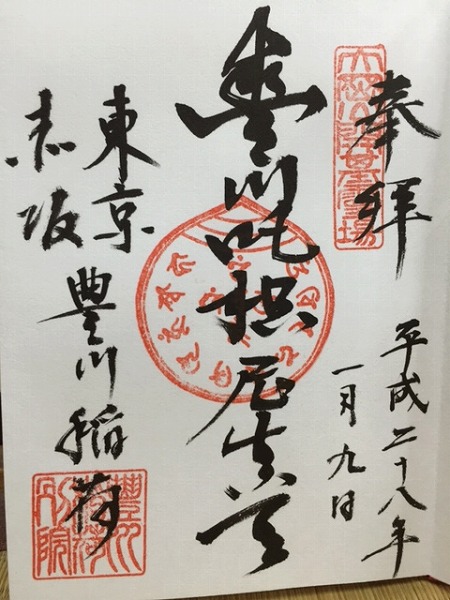 奉拝
平成二十八年
一月九日
豊川吒枳尼真天
東京
赤坂
豊川稲荷
豊川
稲荷
別院